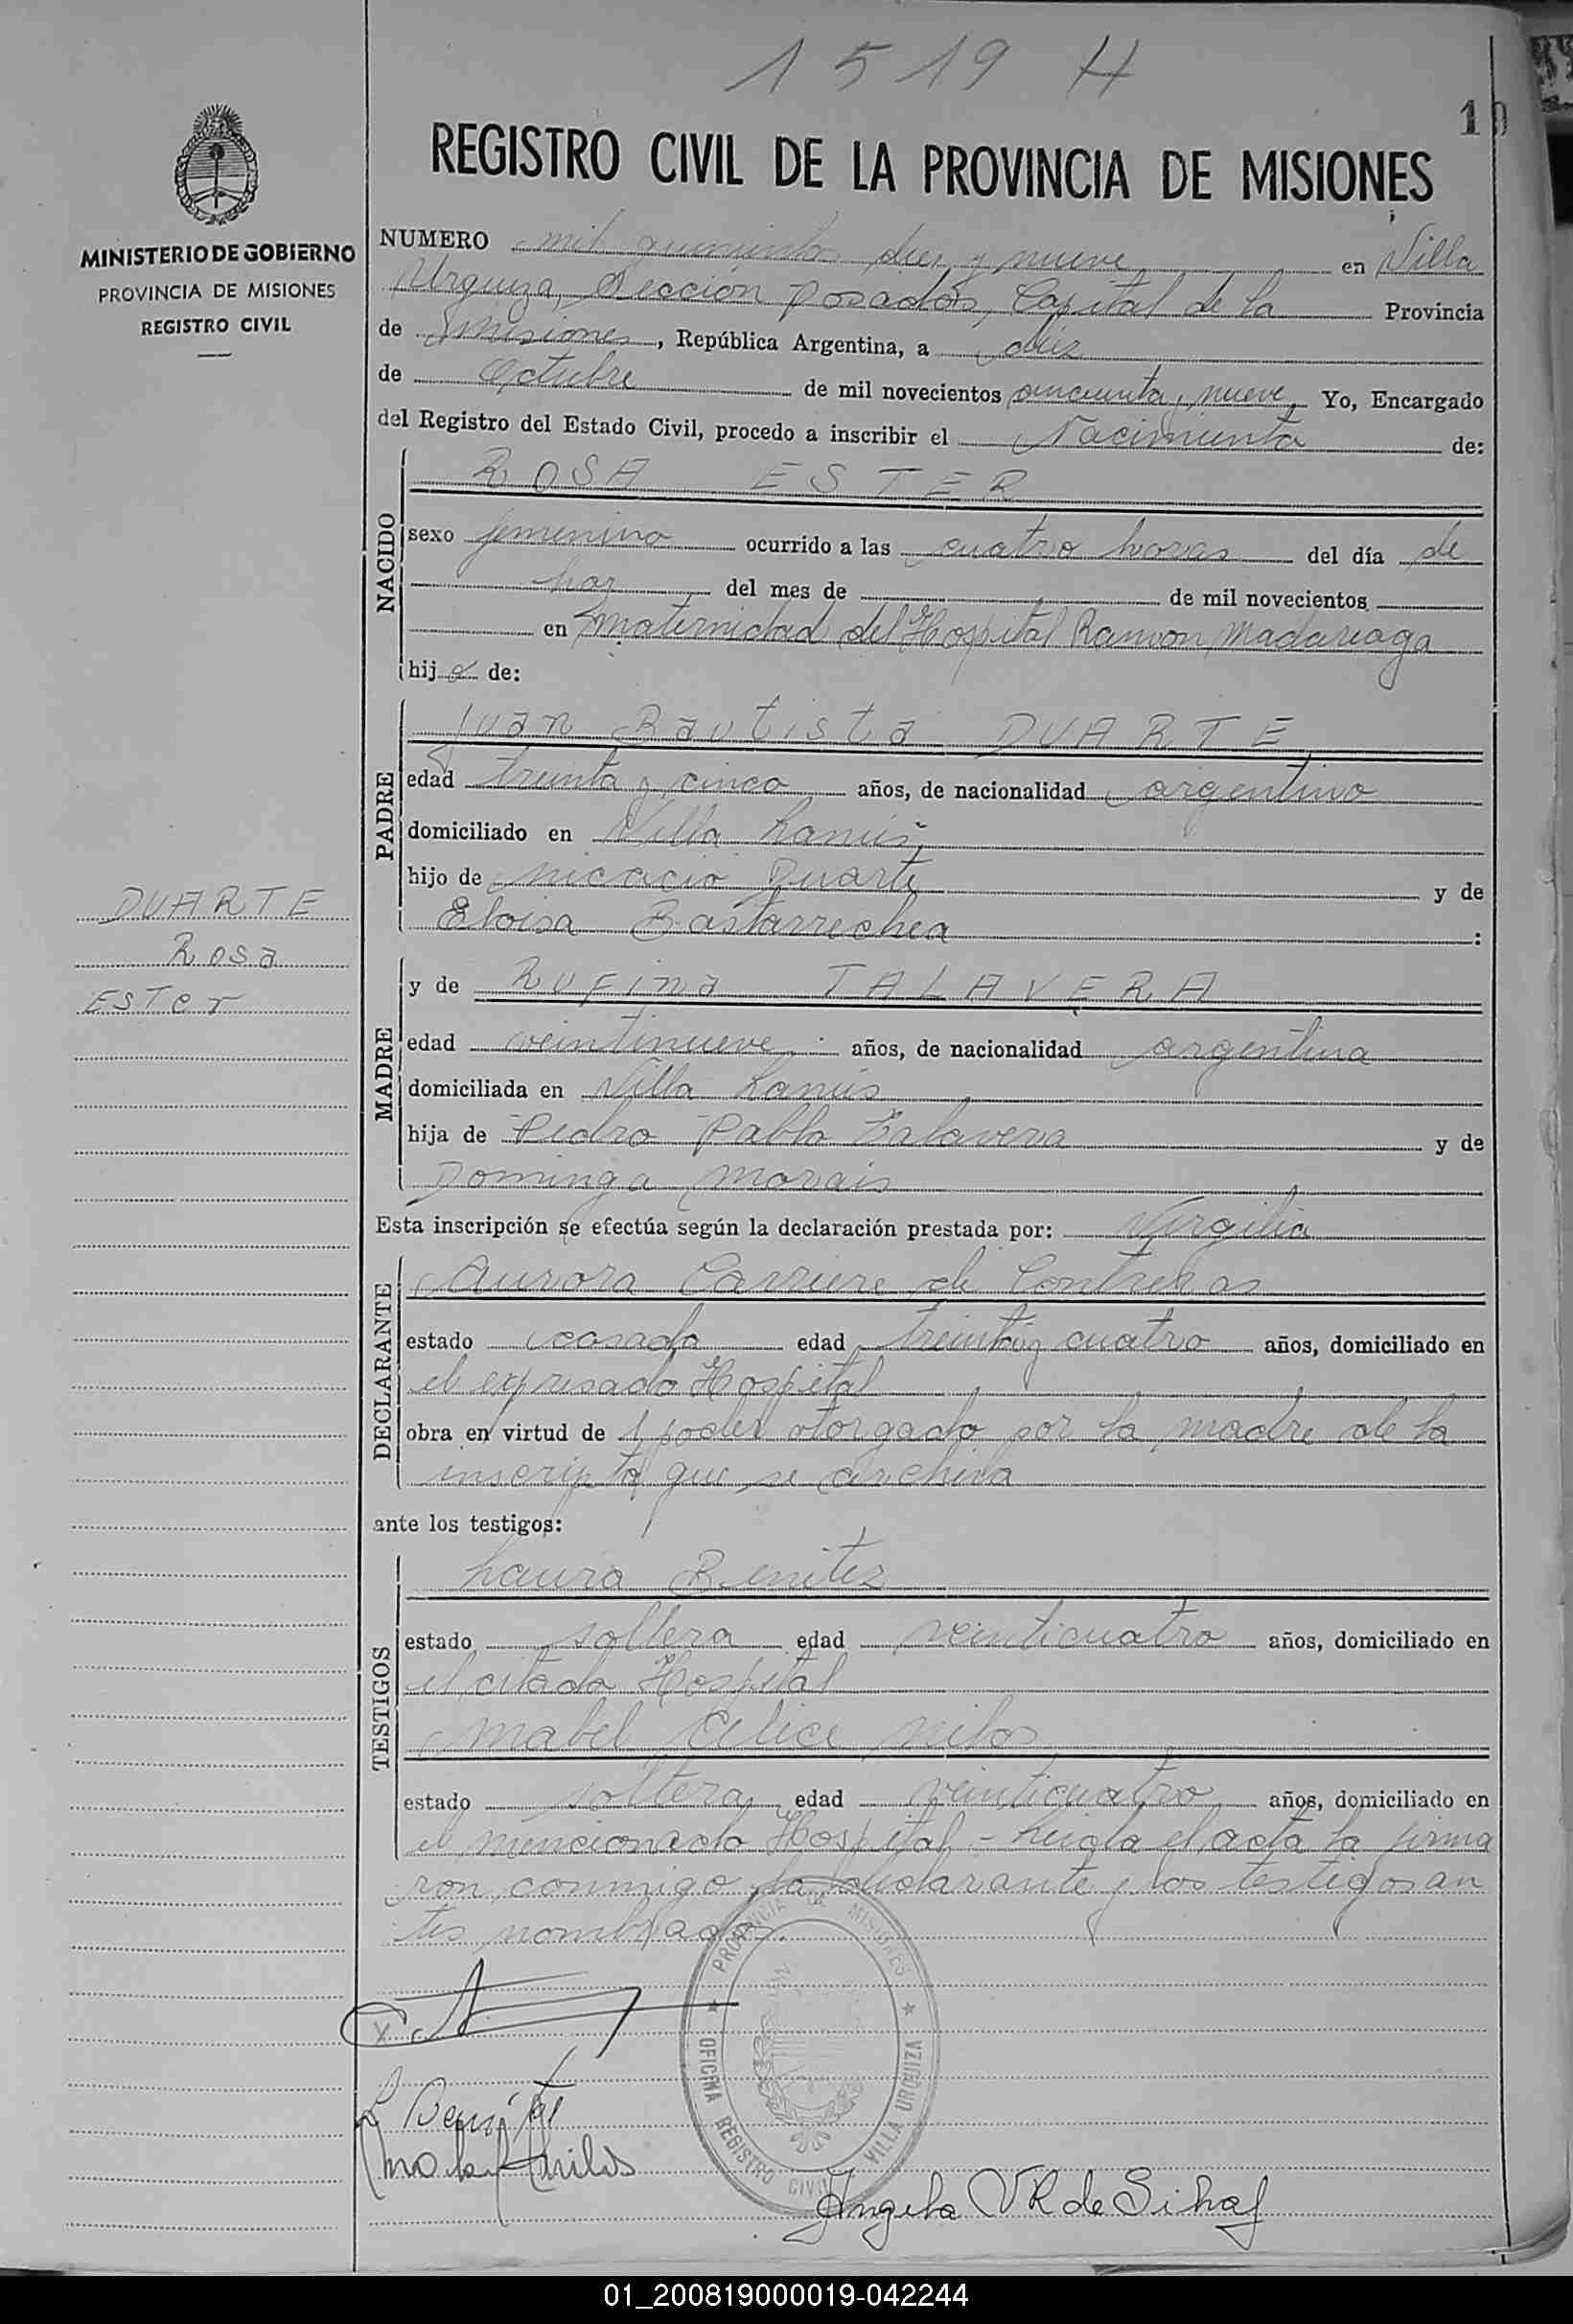 1519 H
10
REGISTRO CIVIL DE LA PROVINCIA DE MISIONES
MINISTERIO DE GOBIERNO
PROVINCIA DE MISIONES
REGISTRO CIVIL
NUMERO mil quinientos diez y nueve en Villa
Urquiza, Sección Posadas, Capital de la Provincia
de Misiones, República Argentina, a diez
de Octubre de mil novecientos cincuenta y nueve, Yo, Encargado
del Registro del Estado Civil, procedo a inscribir el Nacimiento de:
NACIDO
ROSA ESTER
sexo femenino ocurrido a las cuatro horas del día de
hoy del mes de de mil novecientos
en Maternidad del Hospital Ramon Madariaga
hija de:
PADRE
Juan Bautista DUARTE
edad treinta y cinco años, de nacionalidad argentino
domiciliado en Villa Lanús
hijo de Nicacio Duarte y de
Eloisa Bastarrechea :
DUARTE
Rosa
Ester
MADRE
y de Rufina TALAVERA
edad veintinueve años, de nacionalidad argentina
domiciliada en Villa Lanús
hija de Pedro Pablo Talavera y de
Dominga Morais
Esta inscripción se efectúa según la declaración prestada por: Virgilia
DECLARANTE
Aurora Carriere de Contreras
estado casada edad treinta y cuatro años, domiciliado en
el expresado Hospital
obra en virtud de 1 poder otorgado por la madre de la
inscripta que se archiva
ante los testigos:
TESTIGOS
Laura Benitez
estado soltera edad veinticuatro años, domiciliado en
el citado Hospital
Mabel
estado soltera edad veinticuatro años, domiciliado en
el mencionado Hospital - Leida el acta la firma
ron conmigo la declarante y los testigos an
tes nombrados.
PROVINCIA DE MISIONES
OFICINA REGISTRO CIVIL VILLA URQUIZA
L Benítez
Angela VR de Sihaf
01_200819000019-042244